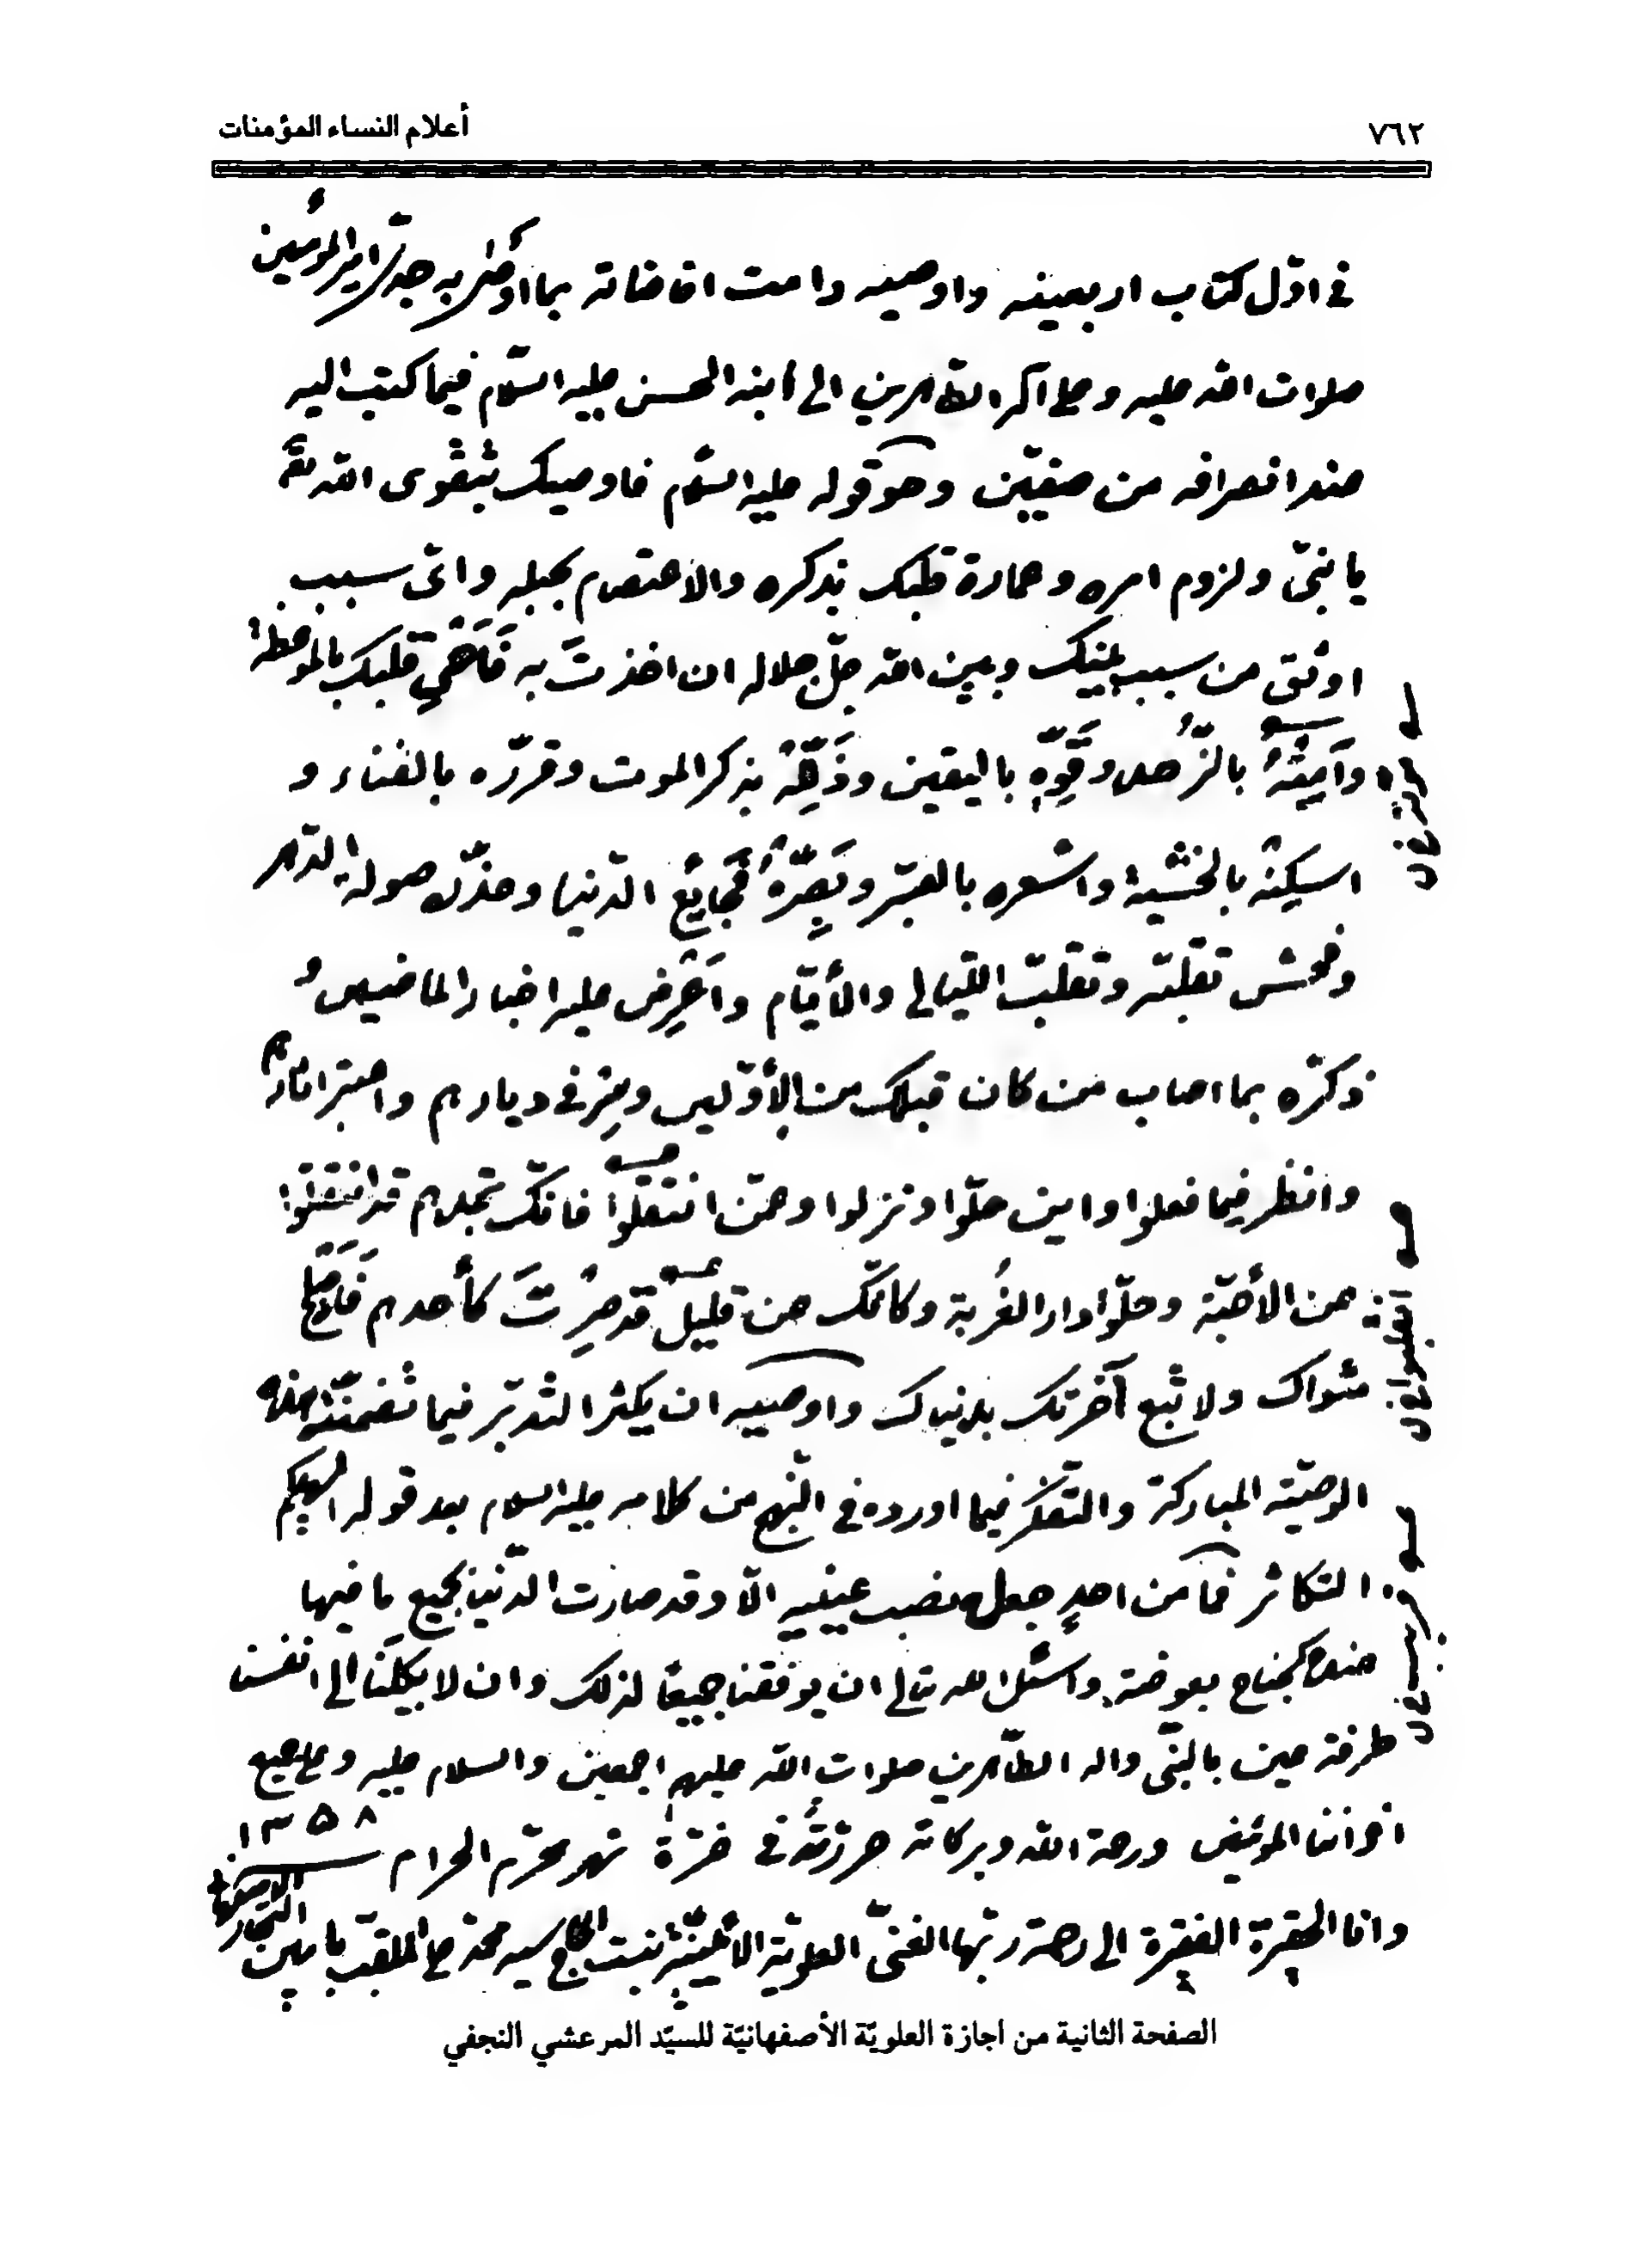 ٧٦٢
أعلام النساء المؤمنات
فى اوّل كتاب اربعينه واوصيه دامت افاضاته بما أوصى به جدّى امير المؤمنين
صلوات الله عليه وعلى آله الطّاهرين الى ابنه الحسن عليه السّلام فيما كتب اليه
عند انصرافه من صفّين وهو قوله عليه السّلام فاوصيك بتقوى الله
يا بنىّ ولزوم امره وعمارة قلبك بذكره والاعتصام بحبله واىّ سبب
اوثق من سبب بينك وبين الله جلّ جلاله ان اخذتَ به فَاَحْيِ قلبك بالموعظة
وَاَمِتْهُ بالزُّهد وقَوِّهِ باليقين وذَلِّلْهُ بذكر الموت وقرّره بالفناء و
اسكِنْهُ بالخشية واشعره بالصّبر وبَصِّرْهُ فَجايِعَ الدّنيا وحذّره صولة الدّهر
وفحش تقلّبه وتقلّب اللّيالى والأيّام واَعْرِض عليه اخبار الماضين و
ذكّره بما اصاب من كان قبلك من الأوّلين وسِر فى ديارهم واعتبر اثارهم
وانظر فيما فعلوا واين حلّوا ونزلوا وعمّن انتقلوا فانّك تجدهم قد انتقلوا
عن الأحبّة وحلّوا دار الغُربة وكانّك عن قليل قد صِرْتَ كأحدهم فَاَصْلِحْ
مثواك ولا تبع آخرتك بدنياك واوصيه ان يكثر التّدبّر فيما تضمنّته هذه
الوصيّة المباركة والتّفكّر فيما اورده فى النّهج من كلامه عليه السلام بعد قوله الهيكم
التكاثر فما من احدٍ جعله نصب عينيه الّا وقد صارت الدّنيا بجميع ما فيها
عنده كجناح بعوضة واسئل الله تعالى ان يوفقنا جميعًا لذلك وان لا يكلَنا الى انفسنا
طرفة عين بالنّبىّ واله الطّاهرين صلوات الله عليهم اجمعين والسلام عليه وعلى جميع
اخواننا المؤمنين ورحمة الله وبركاته حررّته فى غرّة شهر محرّم الحرام ١٣٥٨
وانا الحقيرة الفقيرة الى رحمة ربّها الغنىّ العلويّة الأمينيّة بنت الحاج سيد محمّد على الملقب بامين التجار الاصفهانى
الصفحة الثانية من اجازة العلويّة الأصفهانيّة للسيّد المرعشي النجفي